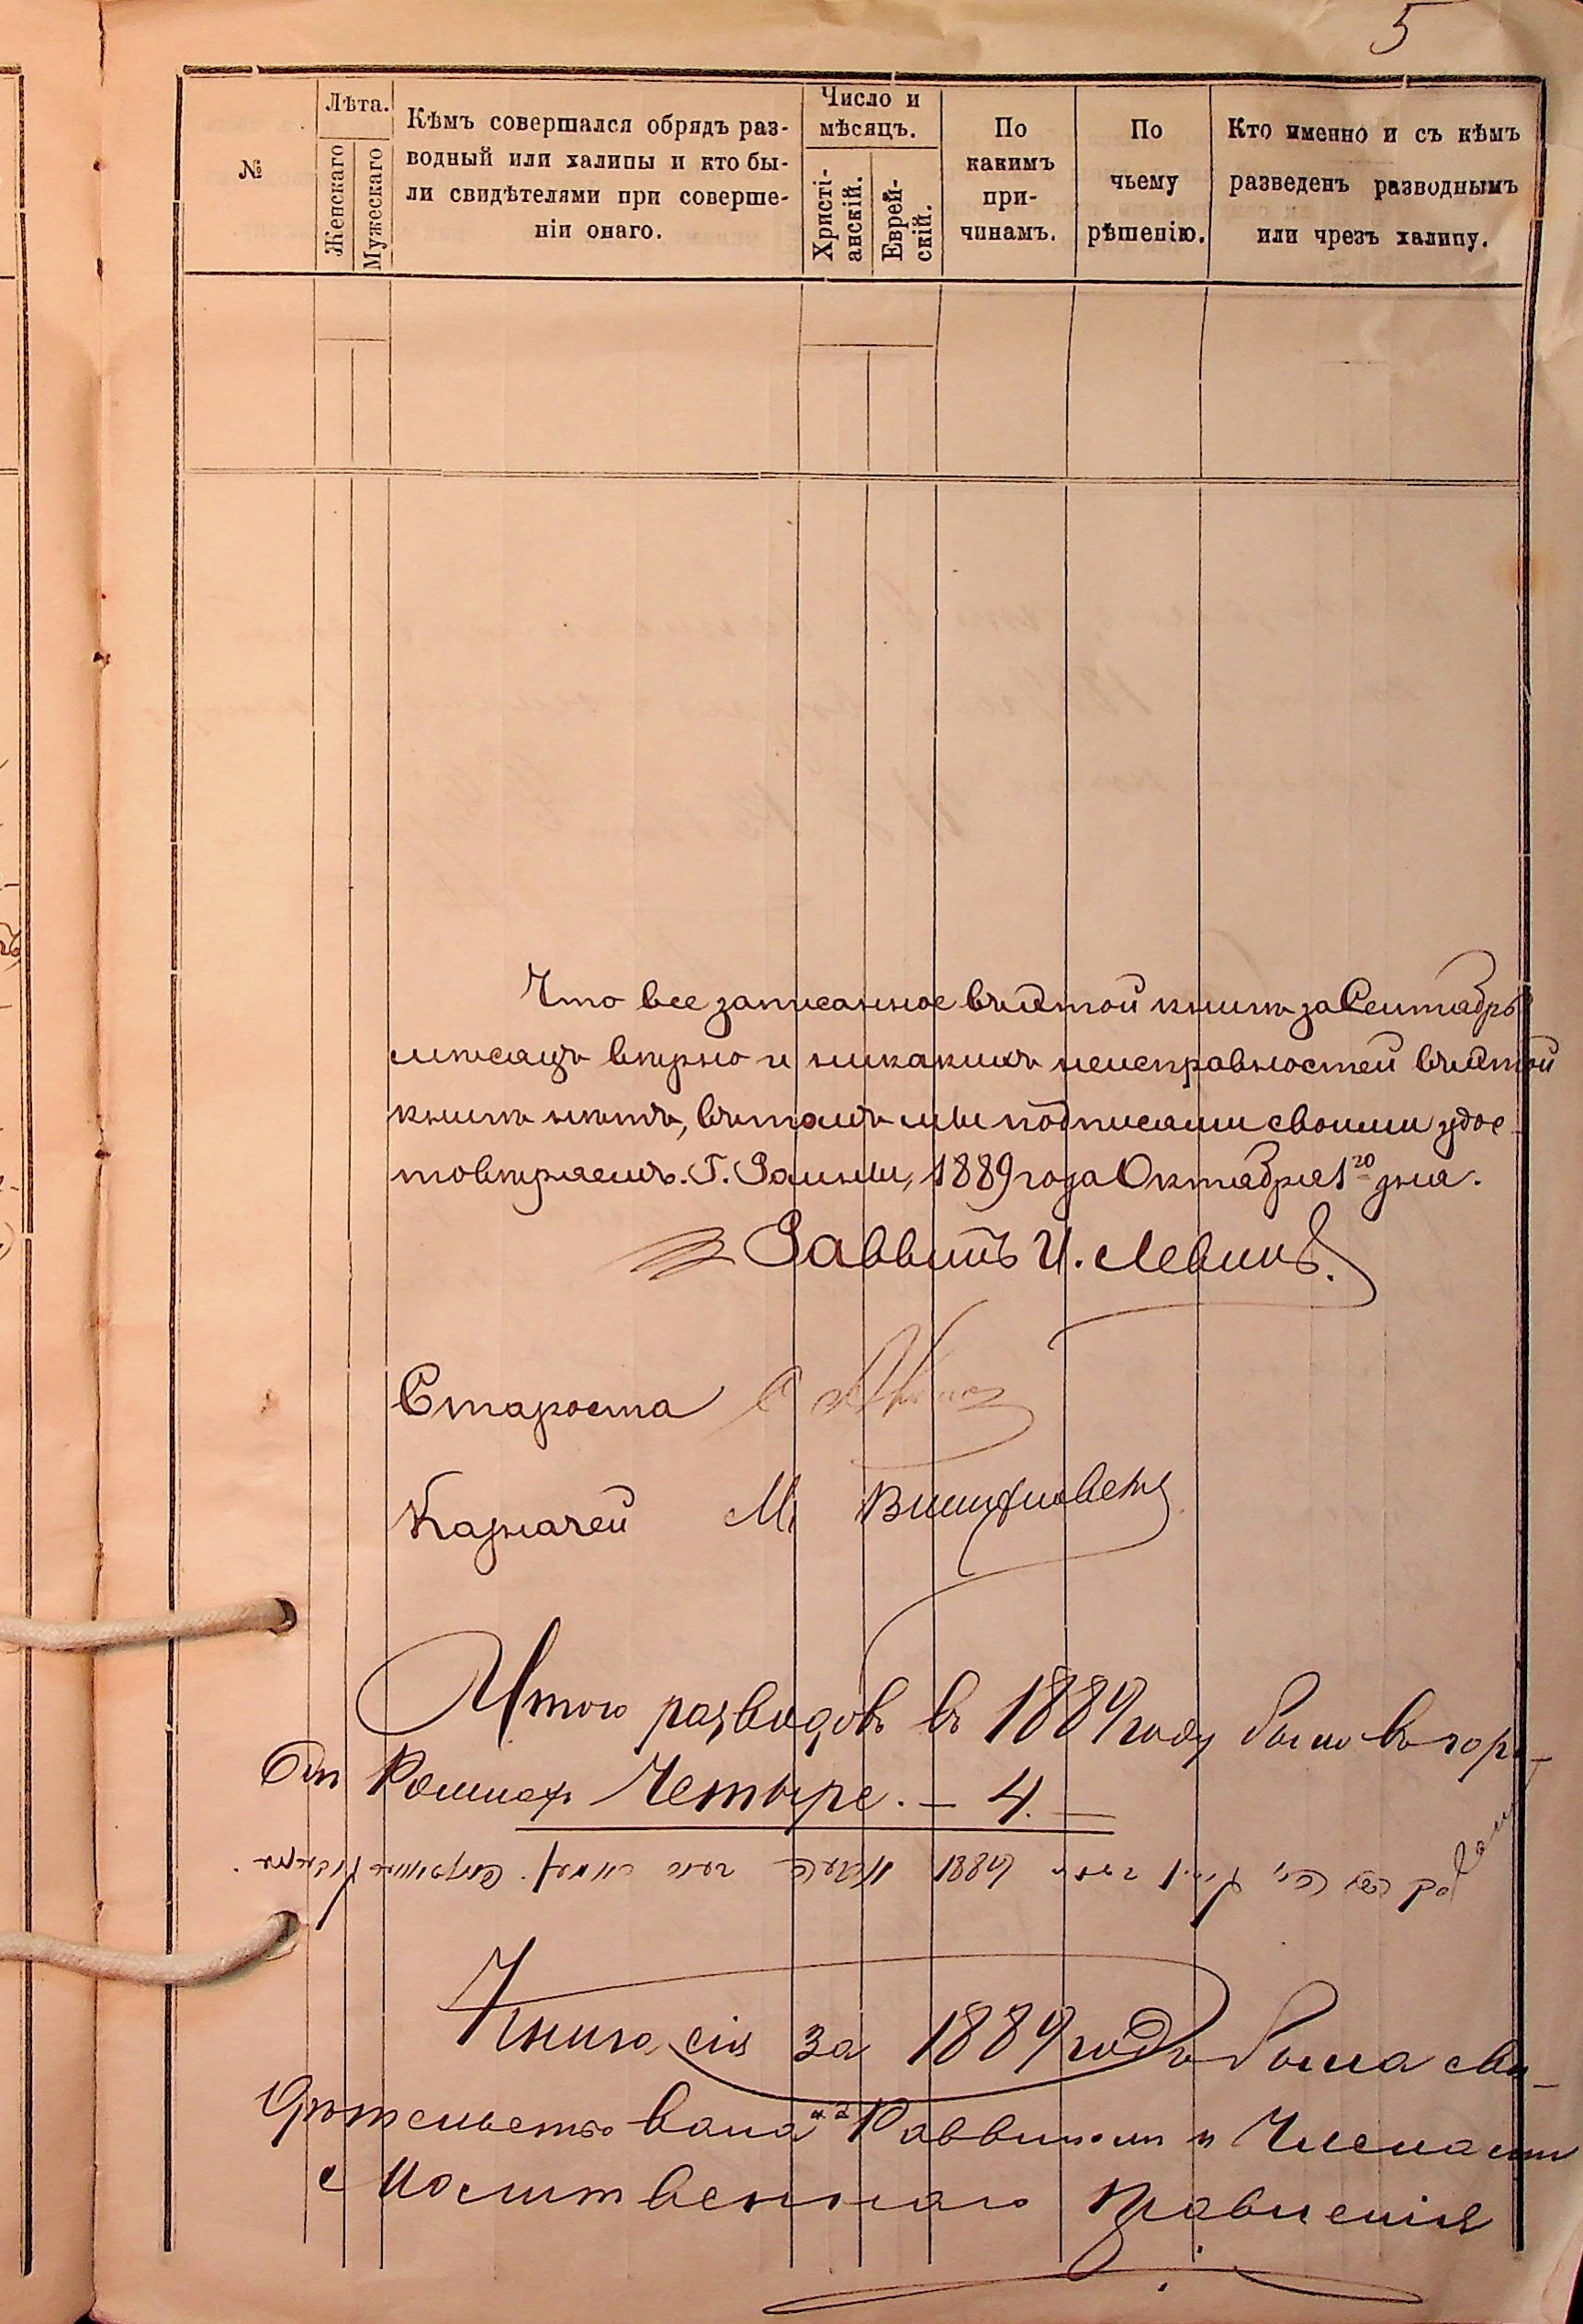 5
№
Лѣта.
Женскаго
Мужескаго
Кѣмъ совершался обрядъ раз-
водный или халипы и кто бы-
ли свидѣтелями при соверше-
ніи онаго.
Число и
мѣсяцъ.
Христі-
анскій.
Еврей-
скій.
По
какимъ
при-
чинамъ.
По
чьему
рѣшенію.
Кто именно и съ кѣмъ
разведенъ разводнымъ
или чрезъ халипу.
Что все записанное въ этой книгѣ за Сентябрь
мѣсяцъ вѣрно и никакихъ неисправностей въ этой
книгѣ нѣтъ, въ томъ мы подписами своими удос-
товѣряемъ. Г. Ромны, 1889 года Октября 1го дня.
Раввинъ И. Левинъ.
Староста
Казначей М.
Итого разводовъ въ 1889 году было въ горо-
дѣ Ромнах Четыре. — 4. —
1889
Книга сія за 1889 годъ была сви-
дѣтельствована Раввиномъ и Членами
Молитвеннаго Правленія